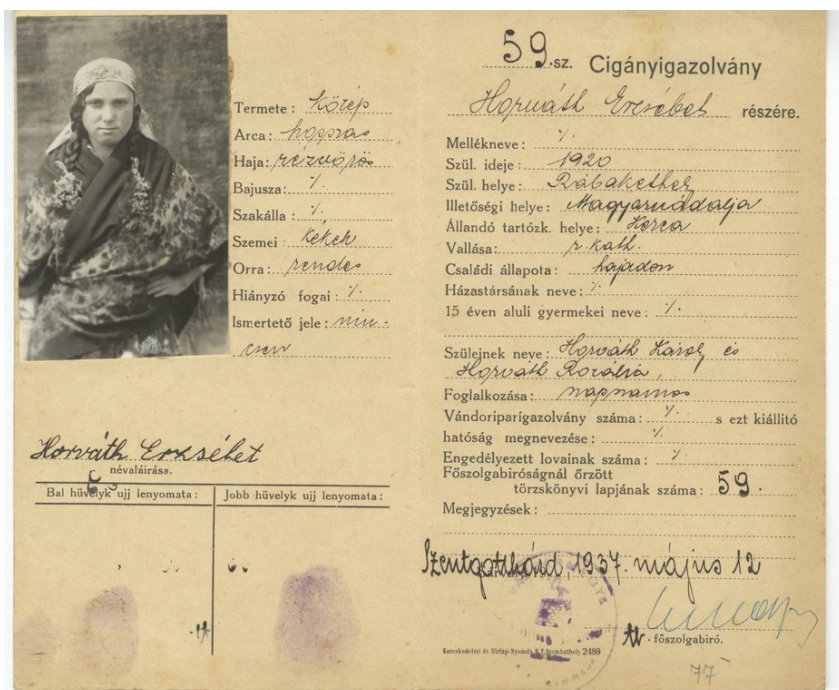 Termete: közép
Arca: hosszas
Haja: rézvörös
Bajusza: ·/·
Szakálla: ·/·
Szemei: kékek
Orra: rendes
Hiányzó fogai: ·/·
Ismertető jele: nin-
csen
Horváth Erzsébet
névaláirása.
Bal hüvelyk ujj lenyomata:
Jobb hüvelyk ujj lenyomata:
59.sz. Cigányigazolvány
Horváth Erzsébet részére.
Mellékneve: ·/·
Szül. ideje: 1920
Szül. helye: Rábakethely
Illetőségi helye: Magyarnádalja
Állandó tartózk. helye: Horca
Vallása: r. kath.
Családi állapota: hajadon
Házastársának neve: ·/·
15 éven aluli gyermekei neve: ·/·
Szülejnek neve: Horváth Károly és
Horváth Rozália,
Foglalkozása: napszamos
Vándoriparigazolvány száma: ·/· s ezt kiállító
hatóság megnevezése: ·/·
Engedélyezett lovainak száma: ·/·
Főszolgabiróságnál őrzött
törzskönyvi lapjának száma: 59.
Megjegyzések:
Szentgotthárd, 1937. május 12
főszolgabiró.
Kereskedelmi és Hirlap-Nyomda R.T. Szombathely 2489
77